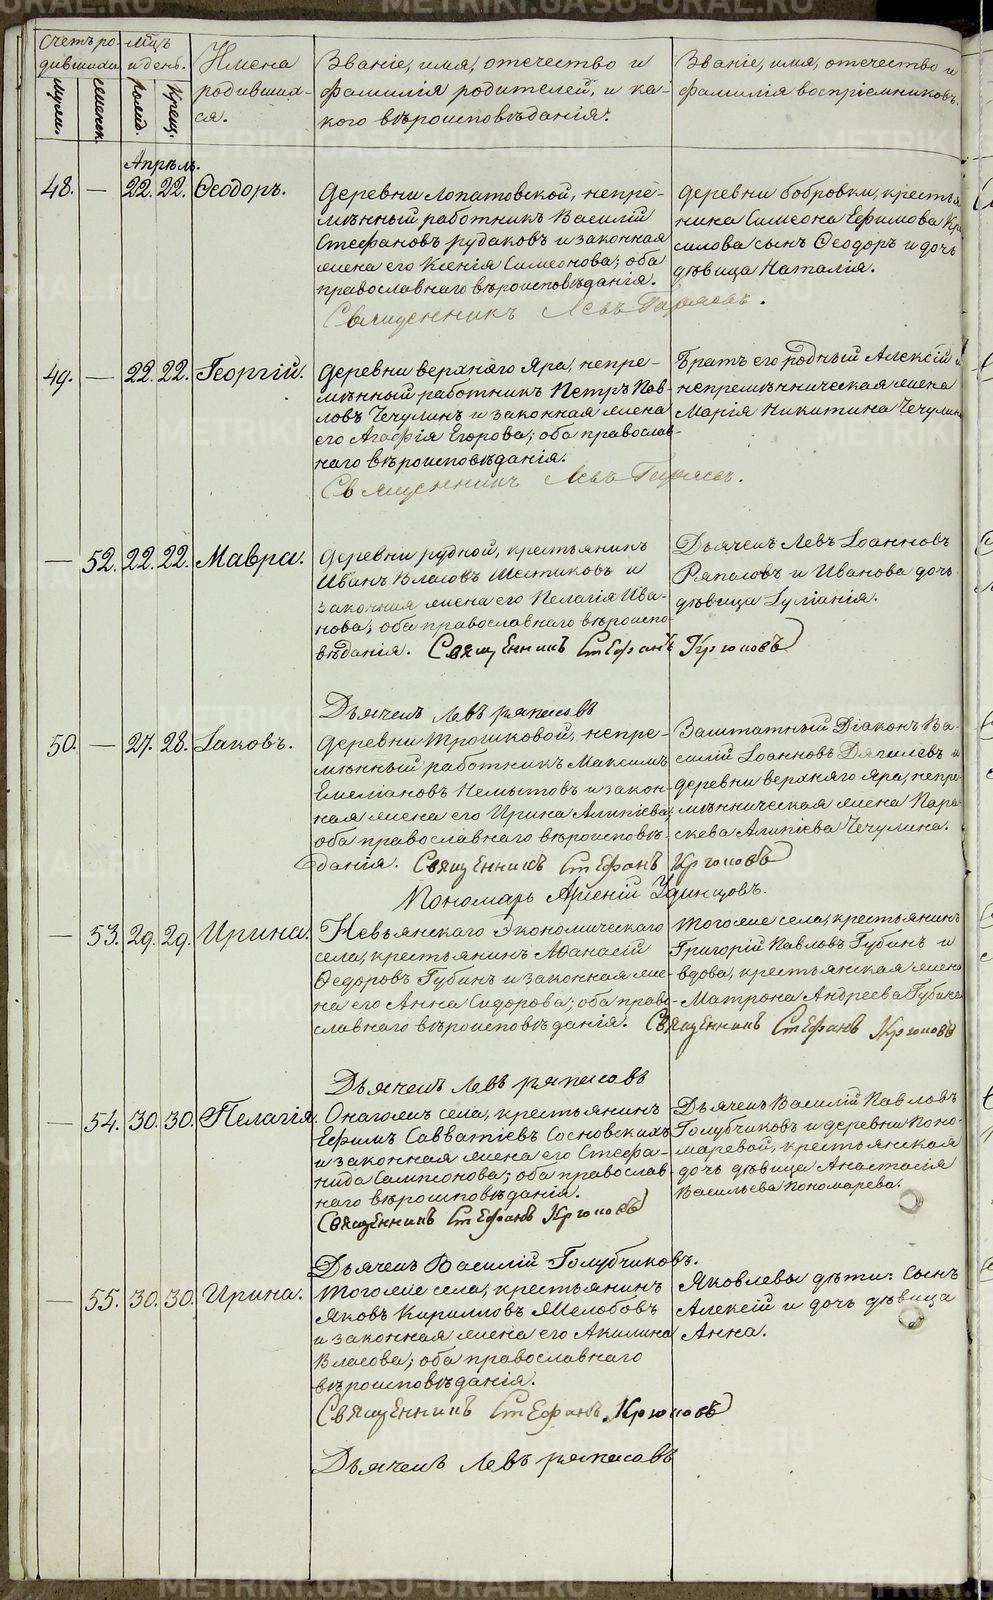 Счетъ ро-
дившихся
Мцъ
и день.
Имена
родивших-
ся.
Званіе, имя, отечество и
фамилія родителей, и ка-
кого вѣроисповѣданія.
Званіе, имя, отечество и
фамилія воспріемниковъ.
Мужеск.
Женск.
Рожд.
Крещ.
Апрѣль.
48. — 22. 22. Ѳеодоръ.
Деревни Лопатовской, непре-
мѣнный работникъ Василій
Стефановъ Рудаковъ и законная
жена его Ксенія Симеонова; оба
православнаго вѣроисповѣданія.
Священникъ Левъ
Деревни Бобровки, крестья
нина Симеона Ефимова
силова сынъ Ѳеодоръ и дочь
дѣвица Наталія.
49. — 22. 22. Георгій.
Деревни Верхняго Яра, непре-
мѣнный работникъ Петръ Пав-
ловъ Чечулинъ и законная жена
его Агафія Егорова; оба православ-
наго вѣроисповѣданія.
Священникъ Левъ
Братъ его родный Алексій и
непремѣнническая жена
Марія Никитина Чечулин
— 52. 22. 22. Мавра.
Деревни Рудной, крестьянинъ
Иванъ Власовъ Шестиковъ и
законная жена его Пелагія Ива-
нова; оба православнаго вѣроиспо-
вѣданія. Священникъ Стефанъ Крюковъ
Дьячекъ Левъ Іоанновъ
Ряпасовъ и Иванова дочь
дѣвица Іуліанія.
Дьячекъ Левъ Ряпасовъ
50. — 27. 28. Іаковъ.
Деревни Трошковой, непре-
мѣнный работникъ Максимъ
Емеліановъ Немытовъ и закон-
ная жена его Ирина Алипіева;
оба православнаго вѣроисповѣ-
данія. Священникъ Стефанъ Крюковъ
Пономарь Арсеній Удинцовъ.
Заштатный Діаконъ Ва-
силій Іоанновъ Дягилевъ и
деревни Верхняго Яра, непре-
мѣнническая жена Пара-
скева Алипіева Чечулина.
— 53. 29. 29. Ирина.
Невьянскаго Экономическаго
села, крестьянинъ Аѳанасій
Ѳедоровъ Губинъ и законная же-
на его Анна Сидорова; оба право-
славнаго вѣроисповѣданія. Священникъ Стефанъ Крюковъ
Тогоже села, крестьянинъ
Григорій Павловъ Губинъ и
вдова, крестьянская жена
Матрона Андреева Губина
Дьячекъ Левъ Ряпасовъ
— 54. 30. 30. Пелагія.
Онагожъ села, крестьянинъ
Ефимъ Савватіевъ Сосновскихъ
и законная жена его Стефа-
нида Сампсонова; оба православ-
наго вѣроисповѣданія.
Священникъ Стефанъ Крюковъ
Дьячекъ Василій Павловъ
Голубчиковъ и деревни Поно-
маревой, крестьянская
дочь дѣвица Анастасія
Васильева Пономарева.
Дьячекъ Василій Голубчиковъ.
— 55. 30. 30. Ирина.
Тогоже села, крестьянинъ
Яковъ Кириловъ Желобовъ
и законная жена его Акилина
Власова; оба православнаго
вѣроисповѣданія.
Священникъ Стефанъ Крюковъ
Яковлевы дѣти: сынъ
Алексій и дочь дѣвица
Анна.
Дьячекъ Левъ Ряпасовъ
METRIKI.GASU-URAL.RU